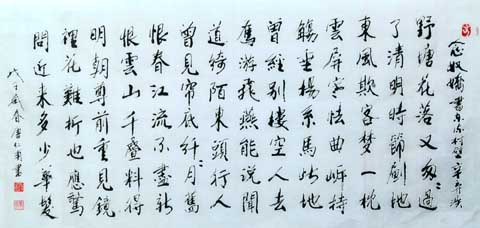 念奴嬌 書東流村壁 辛弃疾
野塘花落又匆〻過
了清明時節剗地
東風欺客夢一枕
雲屏寒怯曲岍持
觴垂楊系馬此地
曾經别楼空人去
舊游飛燕能說聞
道綺陌東頭行人
曾見帘底纤〻月舊
恨春江流不盡新
恨雲山千疊料得
明朝尊前重見鏡
裡花難折也應驚
問近來多少華髮
戊子歲春